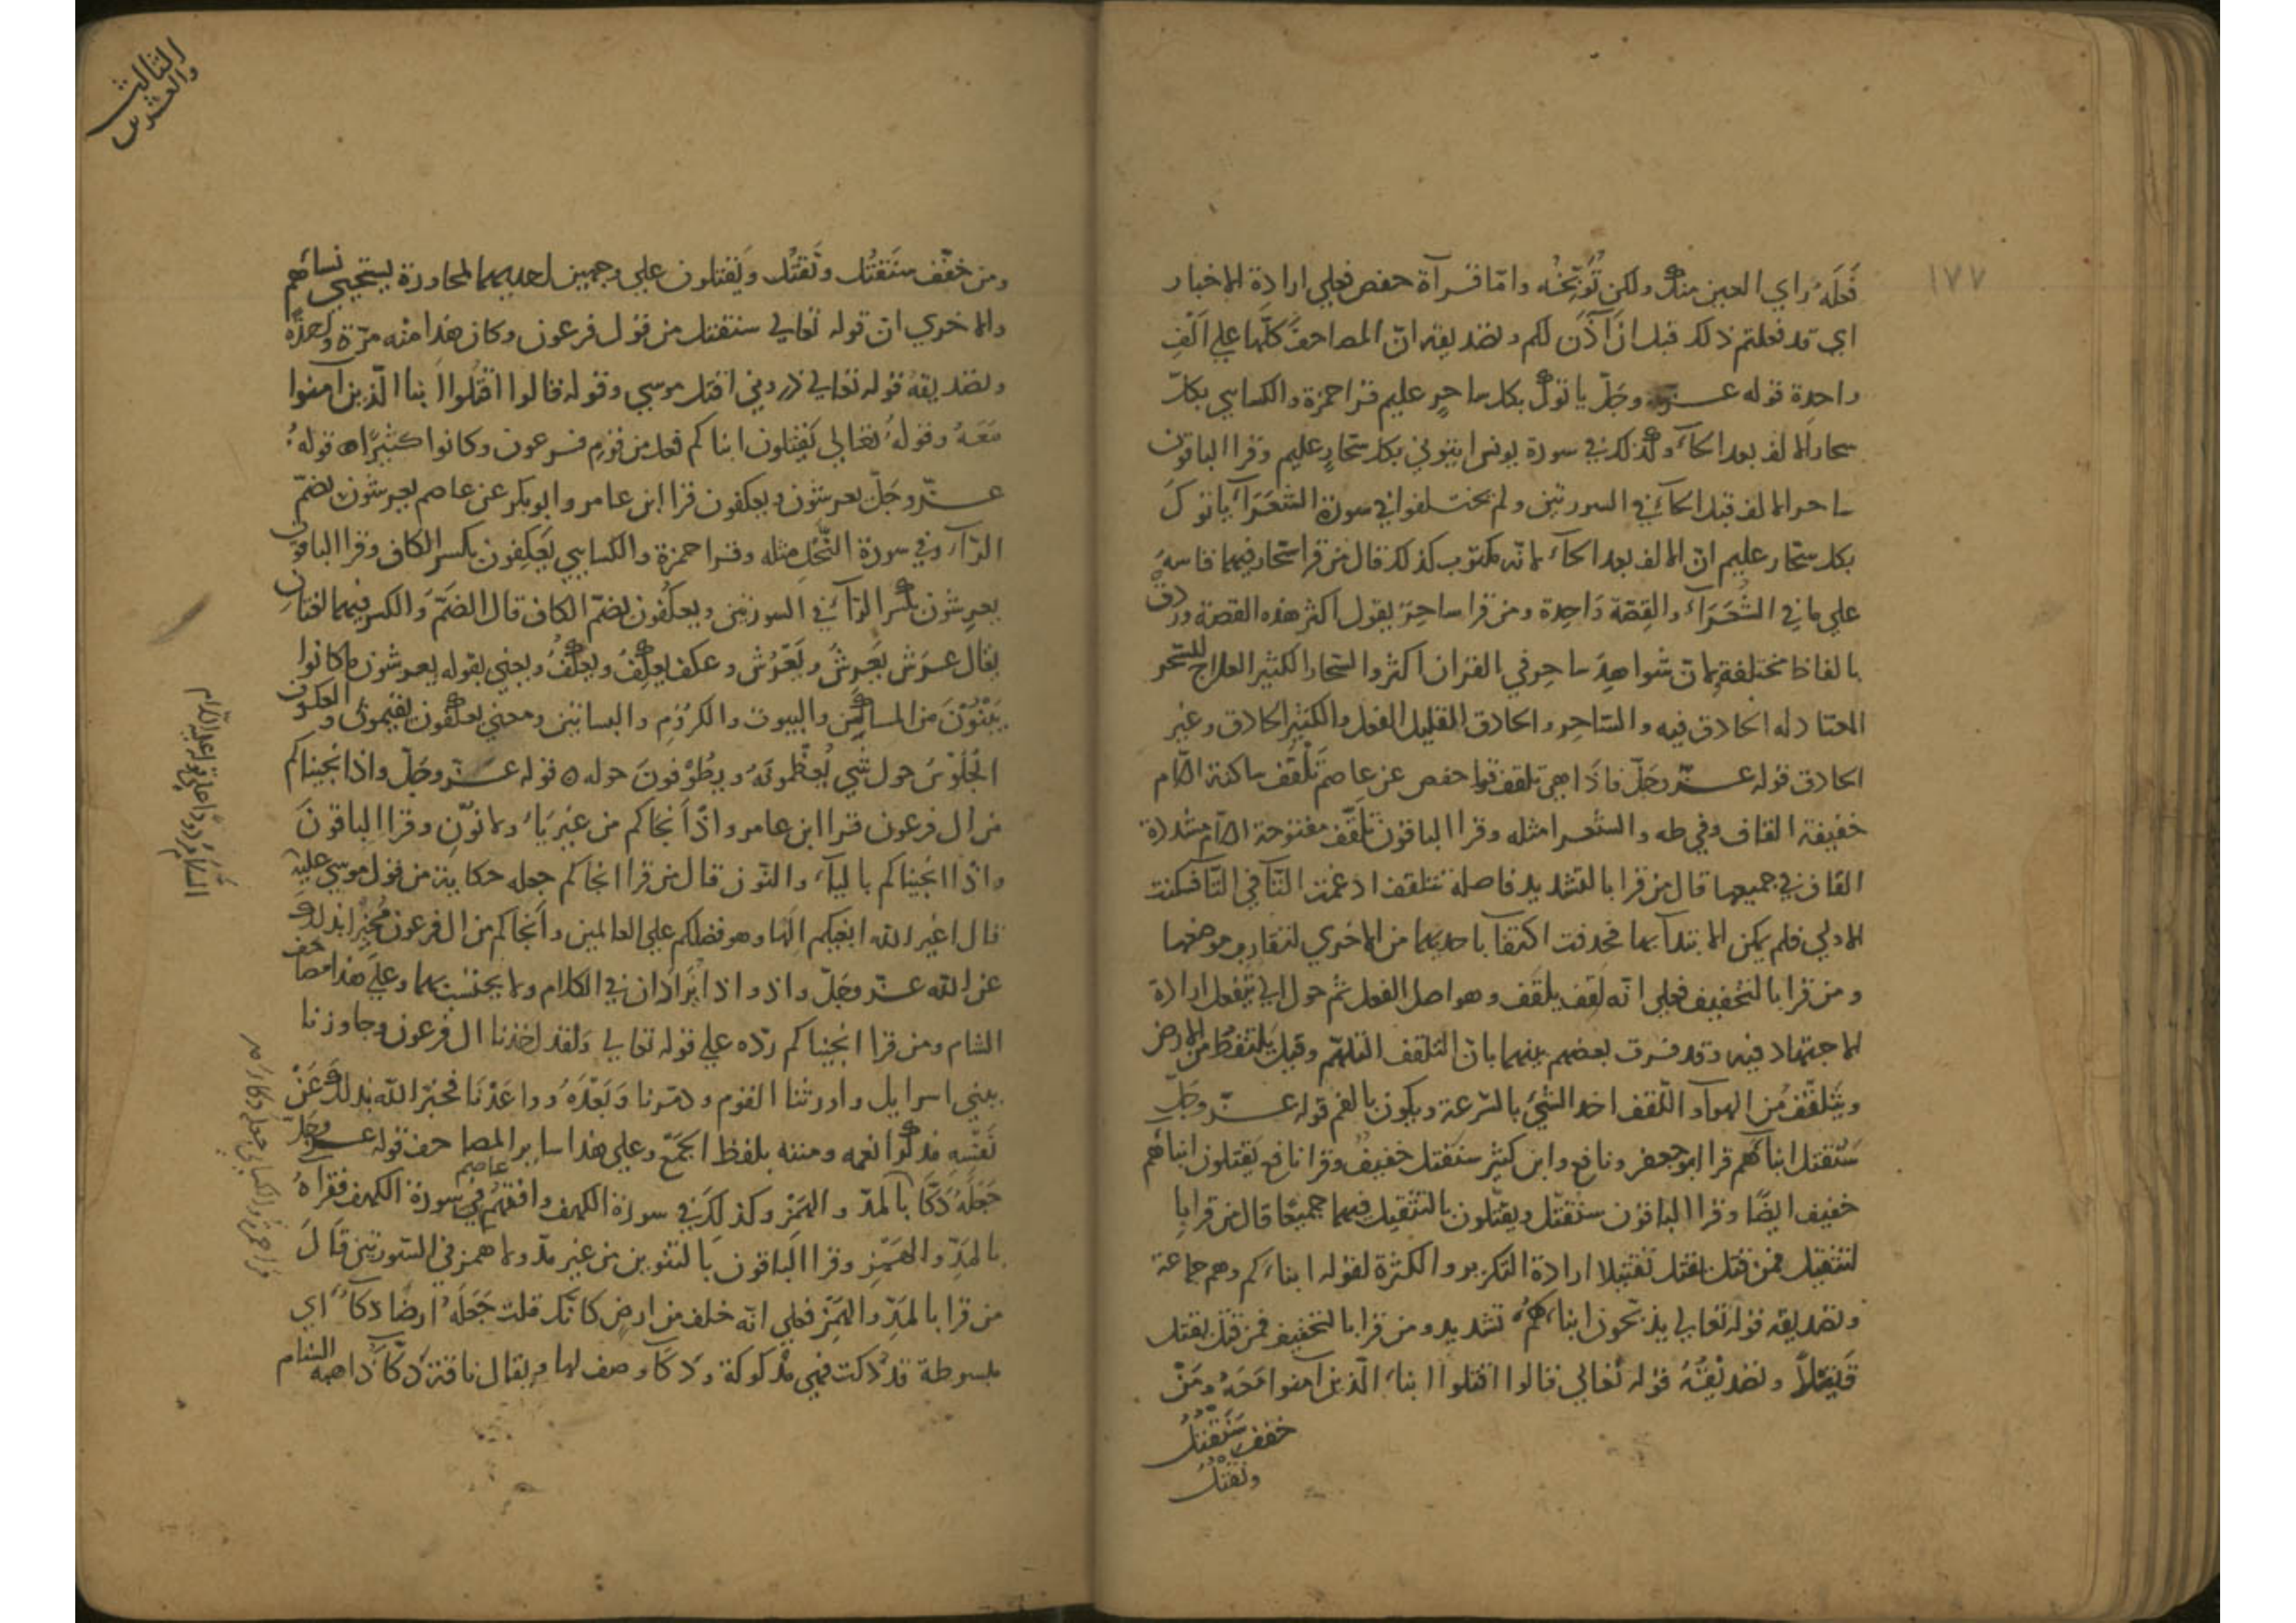 ١٧٧
فَعَلَهُ راي العين منك ولكن تُوَبِّخُه وامّا قرآة حفص فعلي ارادة الاخبار
اي قد فعلتم ذلك قبل ان آذَن لكم وتصديقه انّ المصاحف كلّها علي اَلْفِ
واحدة قوله عزّ وجَلّ ياتوك بكل ساحرٍ عليم قرا حمزة والكساىي بكلّ
سحار الالف بعد الحآء وكذلك في سورة يونس ايتوني بكل سحّارٍ عليم وقرا الباقون
ساحر الالف قبل الحآء في السورتين ولم يختلفوا في سورة الشعَرَآء ياتوكَ
بكل سحّار عليم انّ الالف بعد الحآء لانّه مكتوب كذلك قال من قرا سحّار فيهما قاسهُ
علي ما في الشُعَرَآء والقِصّة وَاحِدة ومن قرا ساحرٍ يقول اكثر هذه القصة وردت
بالفاظ مختلفة لانّ شواهِدَ ساحر في القران اكثر والسحّار الكثير العلاج للسّحر
المعتاد له الحاذق فيه والسّاحر والحاذق القليل الفعل والكثير الحاذق وغير
الحاذق قوله عزّ وجَلّ فاذَا هي تلقف قرا حفص عن عاصم تَلْقَف ساكنة اللّام
خفيفة القاف وفي طه والشعرا مثله وقرا الباقون تَلَقَّف مفتوحة اللّام مشدّدة
القاف في جميعها قال من قرا بالتشديد فاصله تتلقف ادغمت التّآ في التّآ فسكنت
الاولي فلم يمكن الابتدآ بها فحذفت اكتفآ باحديهما من الاخري لتقارب موضعهما
ومن قرا بالتخفيف فعلي انّه لَقِف يلقَف وهو اصل الفعل ثم حول الي تفعل ارادة
الاجتهاد فيه وقد فرق بعضهم بينهما بانّ التلقف التلهّم وقيل يلتقطُ من الارض
ويَتَلقَّفُ مِن الهوآء واللّقف اخذ الشيْء بالسّرعة ويكون بالفم قوله عزّ وجَلّ
سَنُقتل ابنآهُم قرا ابو جعفر ونافع وابن كثير سنَقتل خفيفٌ وقرا نافع يَقتلون ابناهُم
خفيف ايضًا وقرا الباقون سنُقتّل ويقتّلون بالتثقيل فيهما جميعًا قال من قرا با
لتثقيل فمن قتّل يقتّل تقتيلا ارادة التكرير والكثرة لقوله ابناءَكم وهم جماعة
وتصديقه قوله تعالي يذبّحون ابناءَكُم تشديد ومن قرا بالتخفيف فمن قتل يقتل
قَتلاً وتصديقُهُ قوله تعالي قالوا اقتلوا ابناء الّذين آمنوا مَعَهُ ومَنْ
خفف سَنَقتُلُ
ونَقْتُلُ
الثالث
والعشرين
ومن خفّف سنَقتُل ونَقتُل ويَقتلون علي وجهين احديهما لمحاورة يستحيي نساهُم
والاخري انّ قوله تعالي سنقتل من قول فرعون وكان هذا منه مرّة واحدةً
وتصديقهُ قوله تعالي ذروني اقتل موسي وقوله قالوا اقتُلوا ابنا الّذين آمنوا
مَعَهُ وقولهُ تعالي يَقتلون ابناكم فعل من قوم فرعون وكانوا كثيرًا ٥ قوله
عزّ وجَلّ يعرشون ويعكفون قرا ابن عامر وابو بكر عن عاصم يعرشون بضمّ
الرّآء وفي سورة النّحل مثله وقرا حمزة والكساىي يَعكِفون بكسر الكاف وقرا الباقون
يعرِشون بكسر الرّآء في السورتين ويعكُفون بضمّ الكاف قال الضمّ والكسر فيهما لغتان
يقال عرَش يَعرِشُ ويَعْرُش وعكف يعكِفُ ويعكُفُ ويعني بقوله يعرشون ما كانوا
يَبْنُوْنَ من المساكن والبيوت والكرُوْمِ والبساتين ومعني يعكفون يقيمون والعكوف
الجُلُوْسُ حول شيْ يُعظّمونهُ ويطُوْفونَ حوله ٥ قوله عزّ وجَلّ واذ انجيناكم
من ال فرعون قرا ابن عامر واذْ اَنجاكم من غير يَاء ولا نوّن وقرا الباقونَ
واذ انجيناكم باليآء والنّون قال من قرا انجاكم جعله حكاية من قول موسي عليه
السَّلام رَدًّا علي قوله عليه السّلام
قال اغير الله ابغيكم الَهًا وهو فضلكم علي العالمين واَنجاكم من ال فرعون مُخبرًا بذلك
عن الله عزّ وجَلّ واذ واذا يُرَادَان في الكلام ولا يحتسب بهما وعلي هذا مصاحف
الشام ومن قرا انجيناكم ردّه علي قوله تعالي وَلقد اخذنا ال فرعون وجاوزنا
ببني اسرايل واورثنا القوم ودمّرنا وَبَعْدَهُ وواعَدْنَا فخبّر الله بذلك عَنْ
نَفْسِه فذكّرَ انعمه ومننه بلفظ الجَمْع وعلي هذا ساير المصاحف قوله عزّ وجَلّ
جَعَلَهُ دَكّا قرا حمزة والكسايي جعله دكآء مد
بالمدّ والهَمْزِ وكذلكَ في سورة الكهف وافقهُم عاصم في سورة الكهف فقراهُ
بالمَدِّ والهَمْزِ وقرا الباقون بالتنوين من غير مدّ ولا همز في السّورتين قَالَ
من قرا بالمَدِّ والهَمْزِ فعلي انّه خلف من ارض كانّك قلت جَعَلَهُ ارضًا دكآءَ اي
مبسوطة قد دُكت فهي مدكوكة ودكآء وصف لها ويقال ناقة دَكّآءُ ذاهبه السّنام